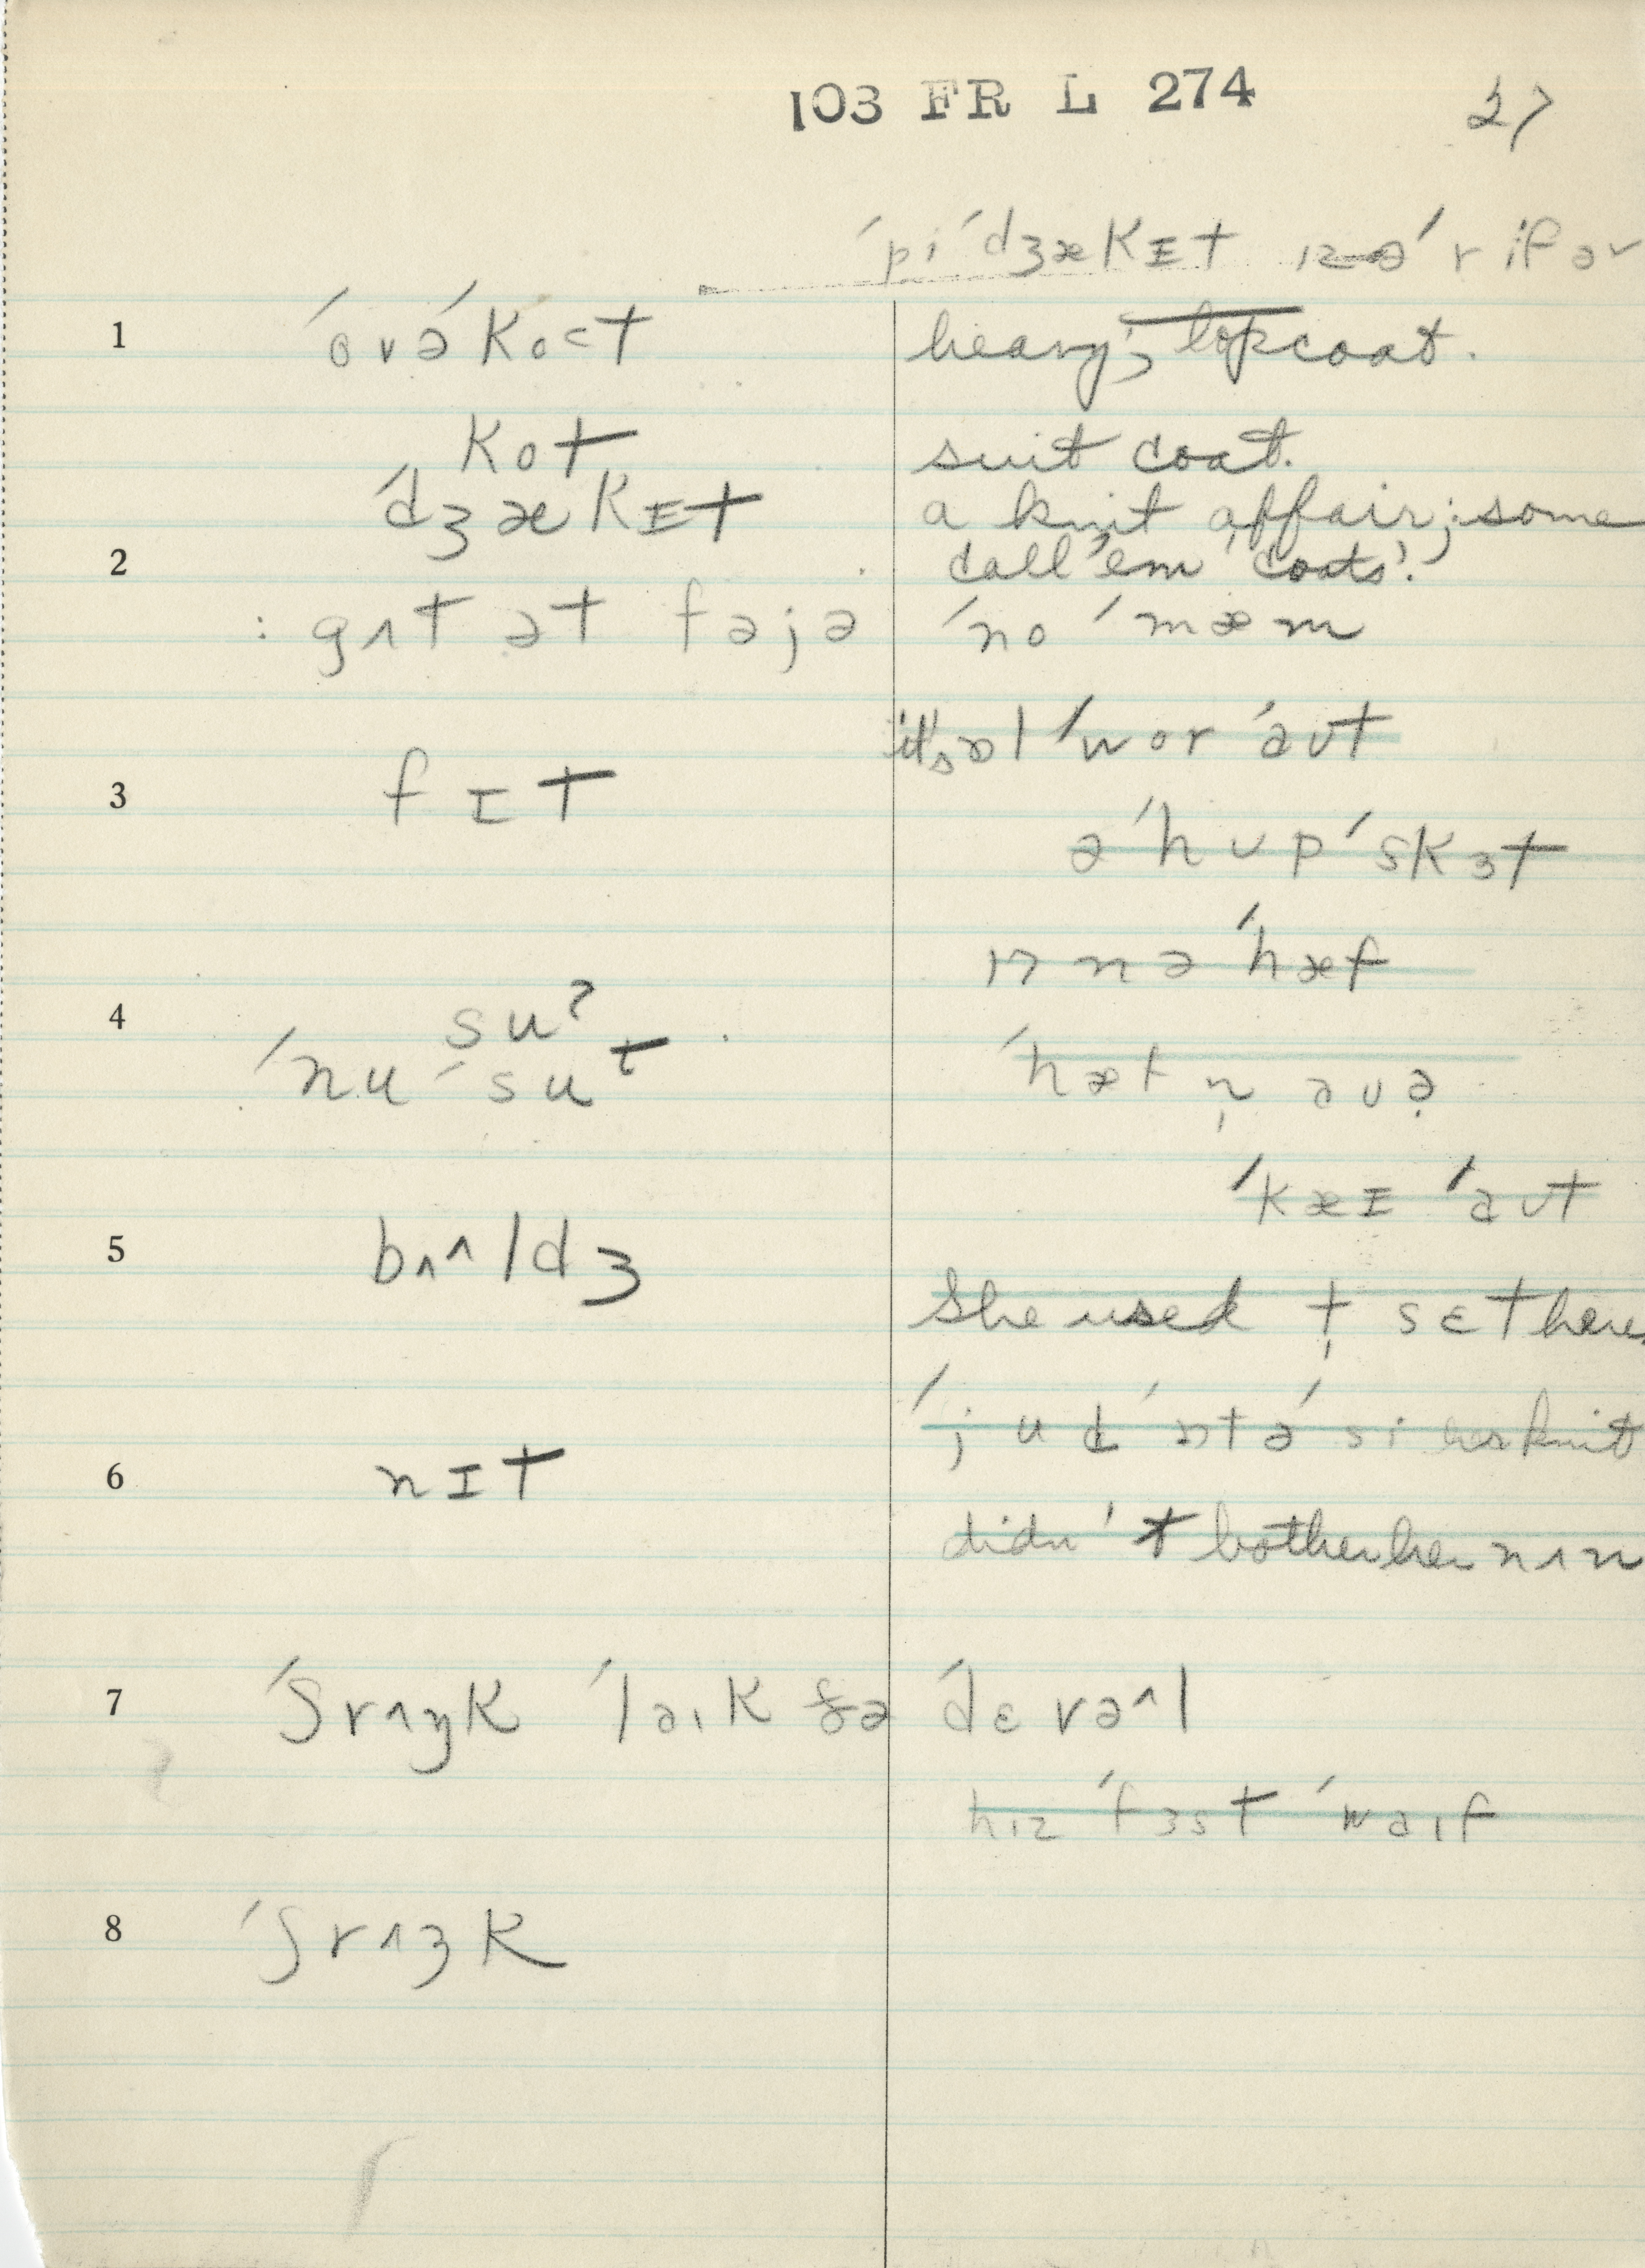 103 FR L 274 27
ˈpiˈdʒækɪt ɪz əˈrifər
1 ˈovəˈkoct heavy, topcoat.
kot suit coat.
ˈdʒækɪt a knit affair; some
2 call 'em 'coats'.
: gʌt ət fəjə ˈno ˈmæm
it's ɒl ˈwor ˈaʊt
3 fɪt
ə ˈhup ˈskɜt
ɪn ə ˈhæf
4 suʔ
ˈnu ˈsut ˈhæt n̩ aʊə
ˈkæɪ ˈaʊt
5 bʌ^ldʒ
She used t̩ sɛt here
ˈjud ˈɒtə ˈsi her knit
6 nɪt
didn't bother her nʌn
7 ˈʃrʌŋk ˈlaɪk ðə ˈdɛvə^l
hɪz ˈfɜst ˈwaɪf
8 ˈʃrʌŋk